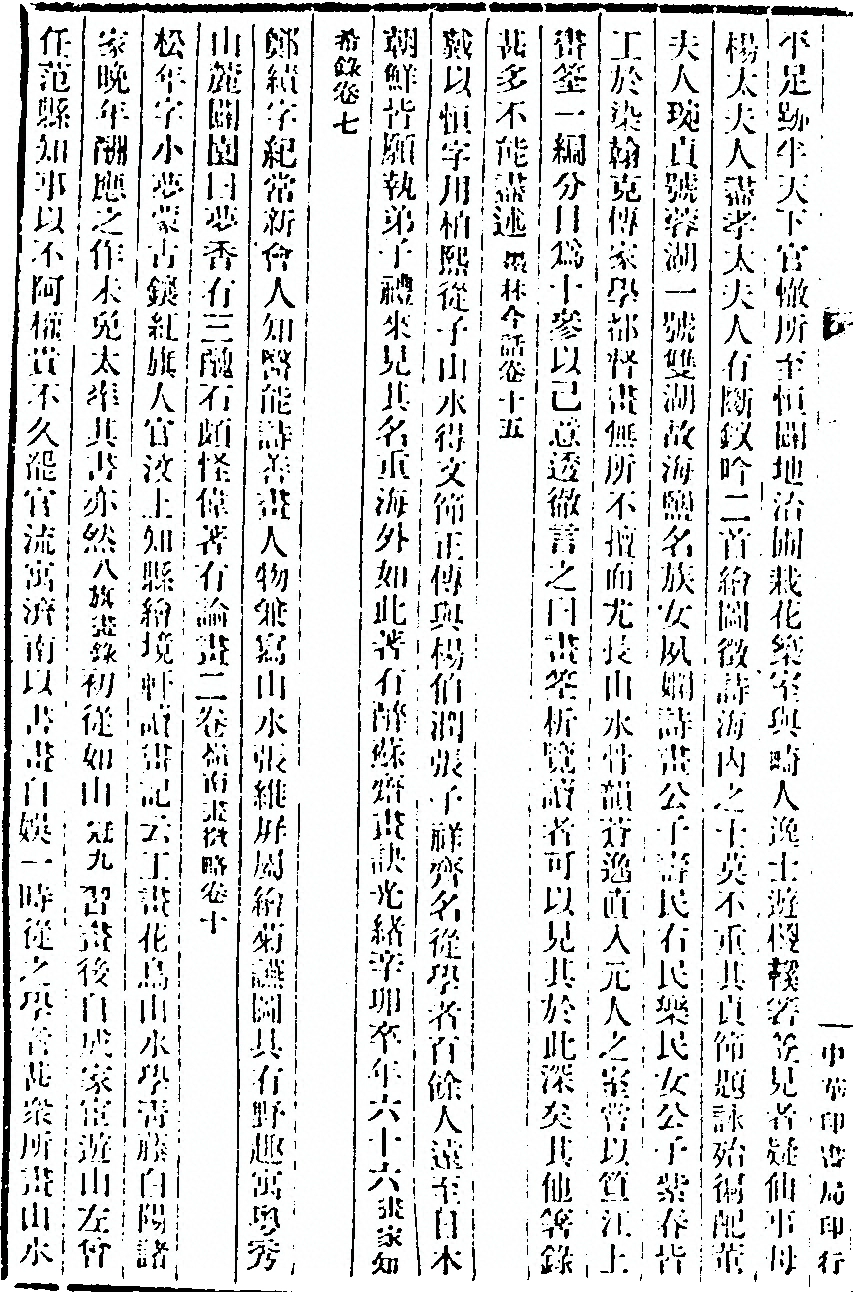 平足跡半天下官轍所至恒闢地治圃栽花築室與畸人逸士遊棕鞵箬笠見者疑仙事母
楊太夫人盡孝太夫人有斷釵吟二首繪圖徵詩海內之士莫不重其貞節題詠殆徧配董
夫人琬貞號蓉湖一號雙湖故海鹽名族女夙嫻詩畫公子壽民石民樂民女公子紫春皆
工於染翰克傳家學都督畫無所不擅而尤長山水骨韻蒼逸直入元人之室嘗以笪江上
畫筌一編分目爲十參以己意透徹言之曰畫筌析覽讀者可以見其於此深矣其他箸錄
甚多不能盡述 墨林今話卷十五
戴以恒字用柏熙從子山水得文節正傳與楊伯潤張子祥齊名從學者百餘人遠至日本
朝鮮皆願執弟子禮來見其名重海外如此著有醉蘇齋畫訣光緒辛卯卒年六十六 畫家知
希錄卷七
鄭績字紀常新會人知醫能詩善畫人物兼寫山水張維屏屬繪菊讌圖具有野趣寓粵秀
山麓闢園曰夢香有三醜石頗怪偉著有論畫二卷 嶺南畫徵略卷十
松年字小夢蒙古鑲紅旗人官汶上知縣繪境軒讀畫記云工畫花鳥山水學靑藤白陽諸
家晚年酬應之作未免太率其書亦然 八旗畫錄 初從如山 冠九 習畫後自成家宦遊山左曾
任范縣知事以不阿權貴不久罷官流寓濟南以書畫自娛一時從之學者甚衆所畫山水
中華印書局印行